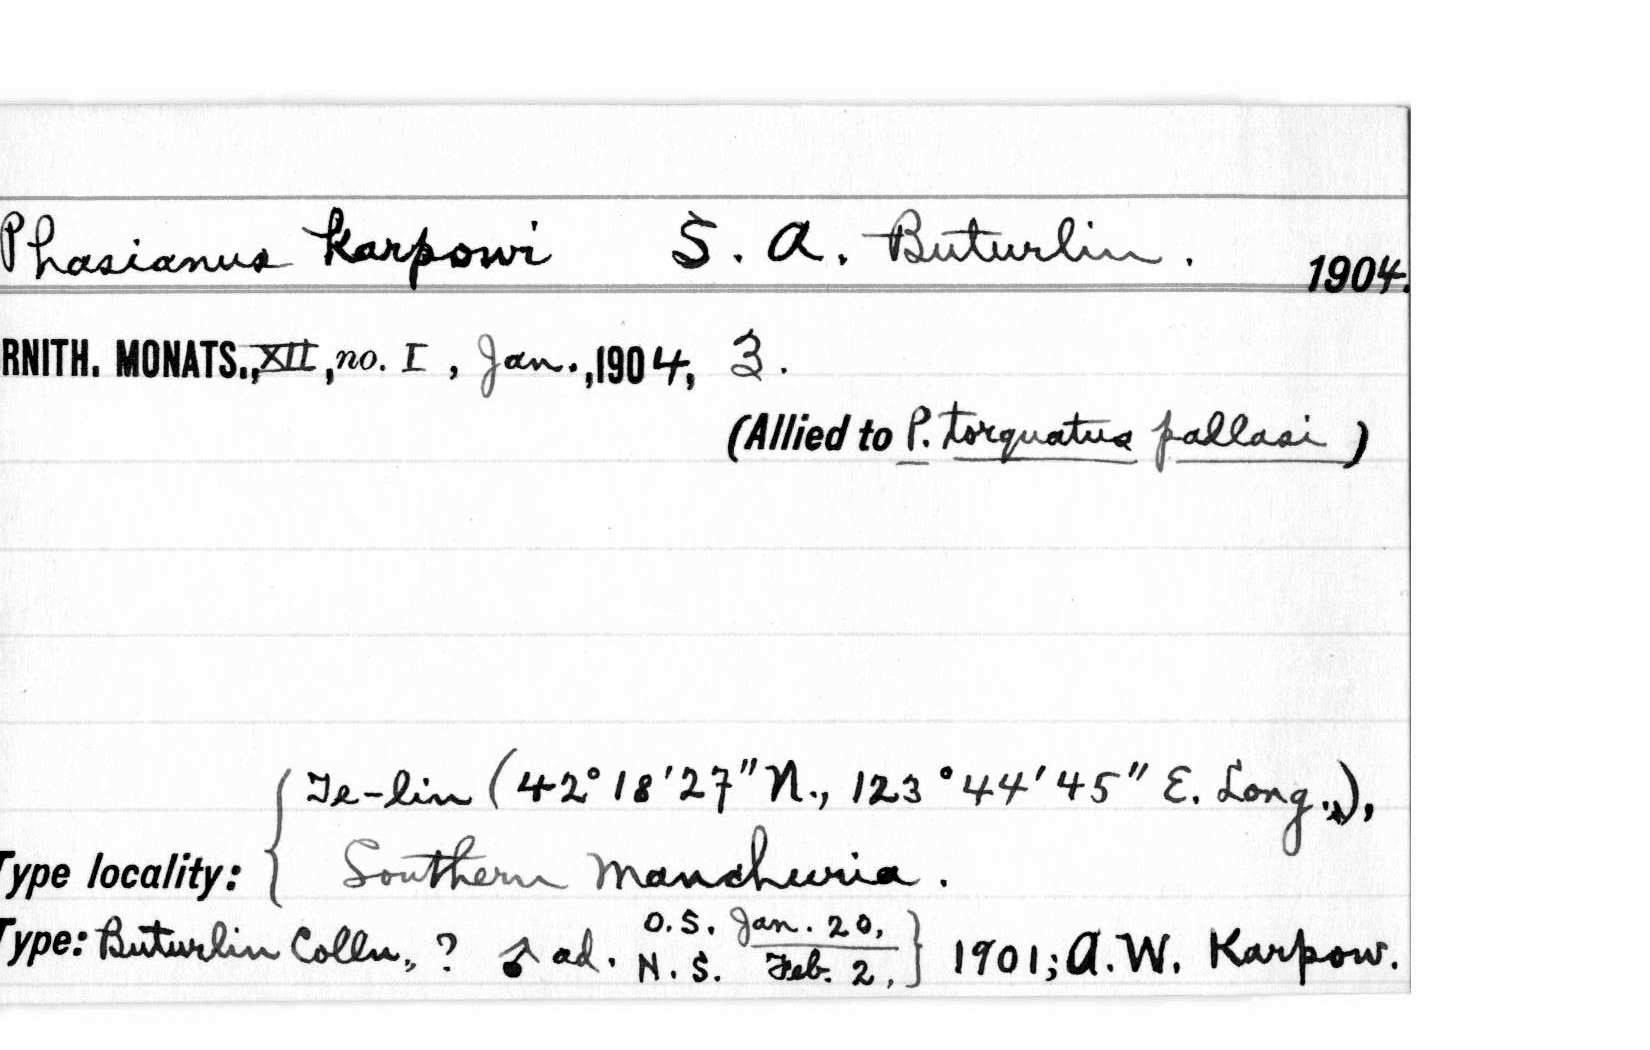 Phasianus karpowi S. A. Buturlin. 1904.
RNITH. MONATS., XII, no. I, Jan., 1904, 3.
(Allied to P. torquatus pallasi)
Te-lin (42° 18' 27" N., 123° 44' 45" E. Long.,),
Type locality: { Southern Manchuria.
O.S. Jan. 20,
Type: Buturlin Colln., ? ♂ ad. } 1901; A. W. Karpow.
N.S. Feb. 2,